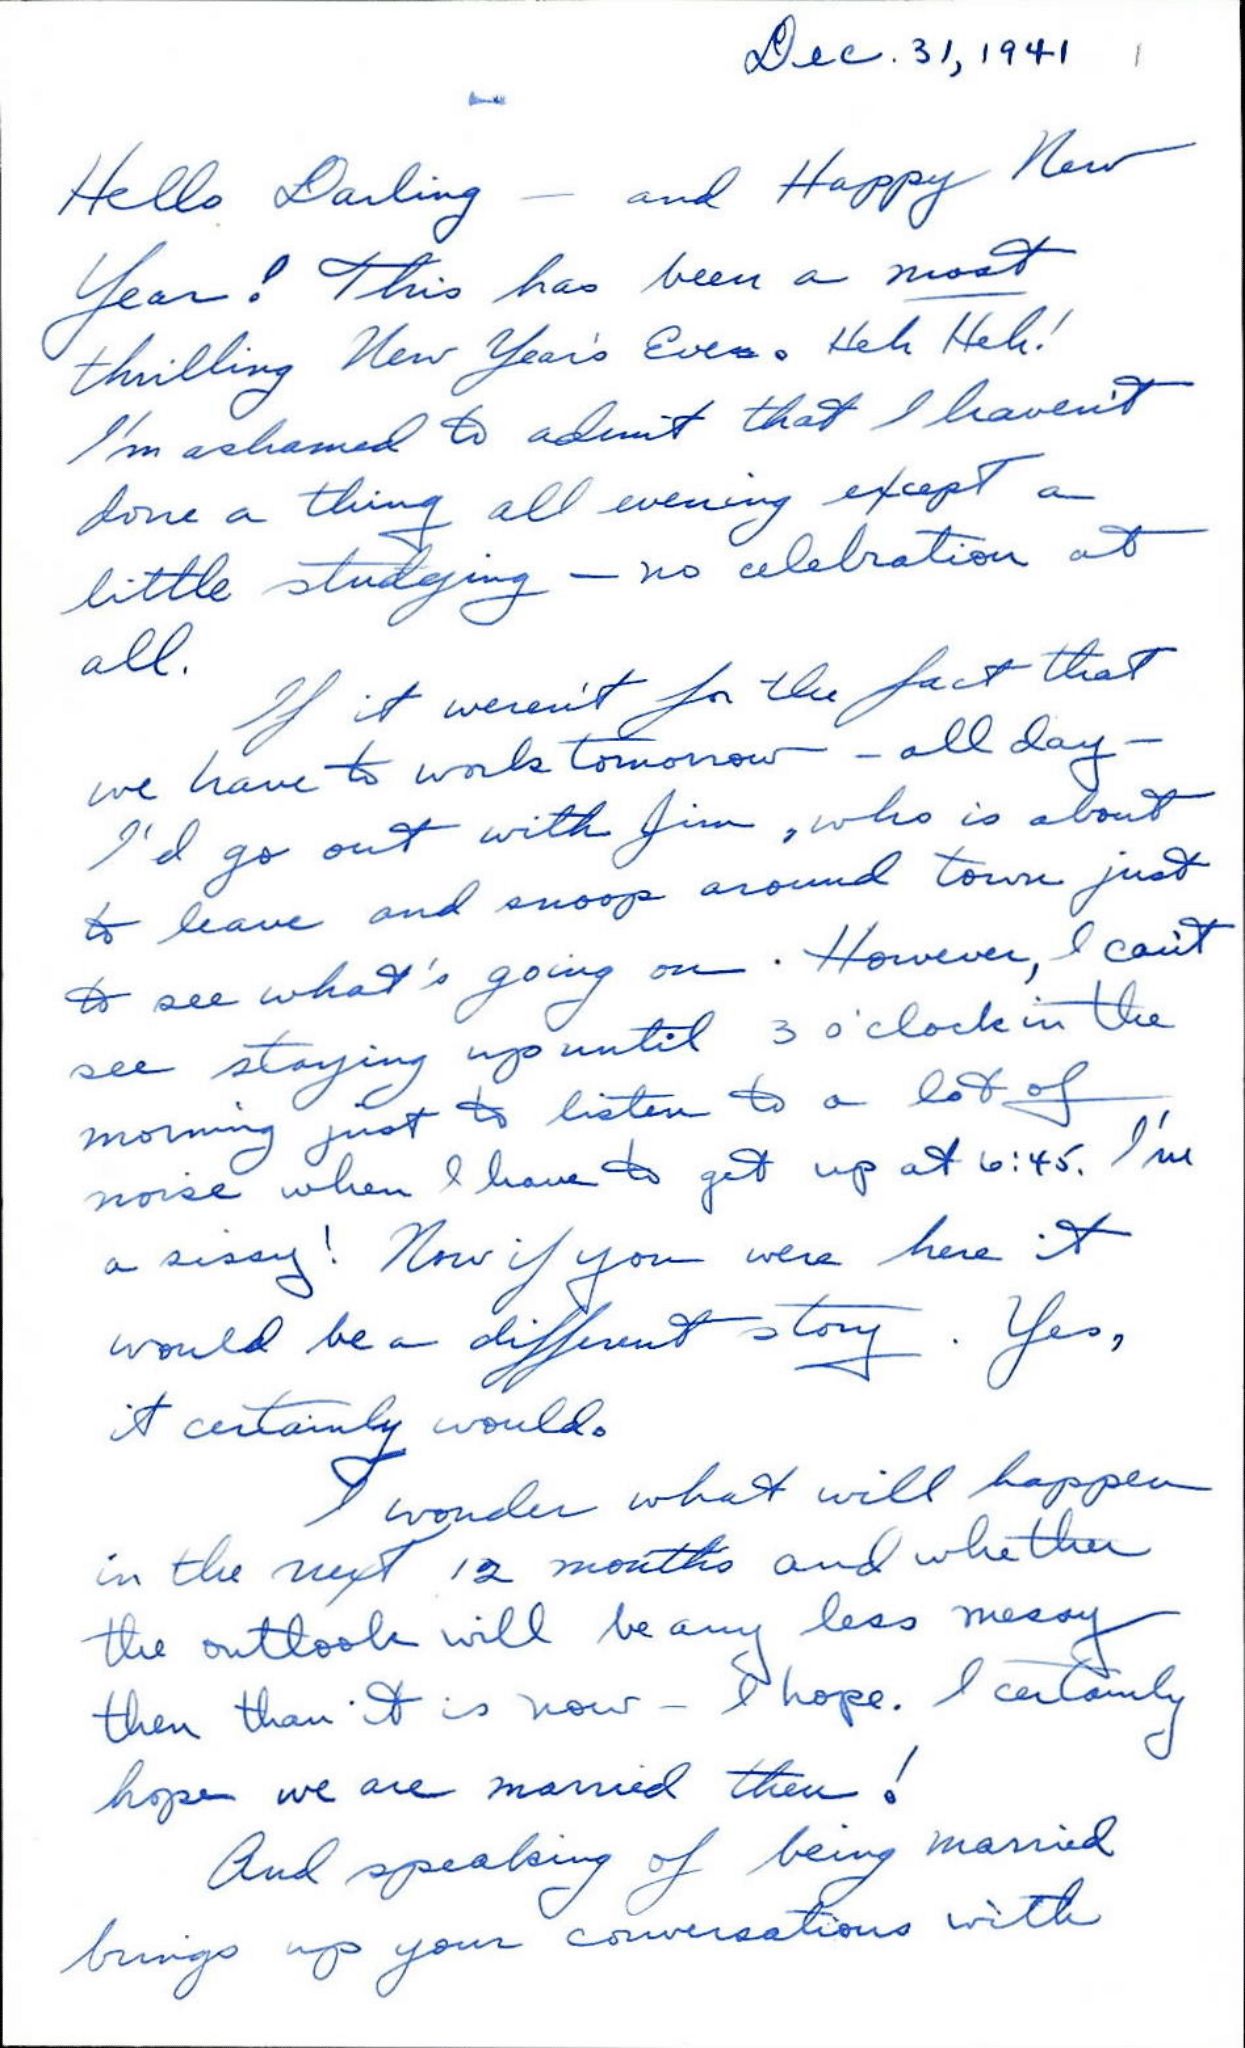 Dec. 31, 1941 1
Hello Darling — and Happy New
Year! This has been a most
thrilling New Year's Eve. Heh Heh!
I'm ashamed to admit that I haven't
done a thing all evening except a
little studying — no celebration at
all.
If it weren't for the fact that
we have to work tomorrow — all day —
I'd go out with Jim, who is about
to leave and snoop around town just
to see what's going on. However, I can't
see staying up until 3 o'clock in the
morning just to listen to a lot of
noise when I have to get up at 6:45. I'm
a sissy! Now if you were here it
would be a different story. Yes,
it certainly would.
I wonder what will happen
in the next 12 months and whether
the outlook will be any less messy
then than it is now — I hope. I certainly
hope we are married then!
And speaking of being married
brings up your conversations with